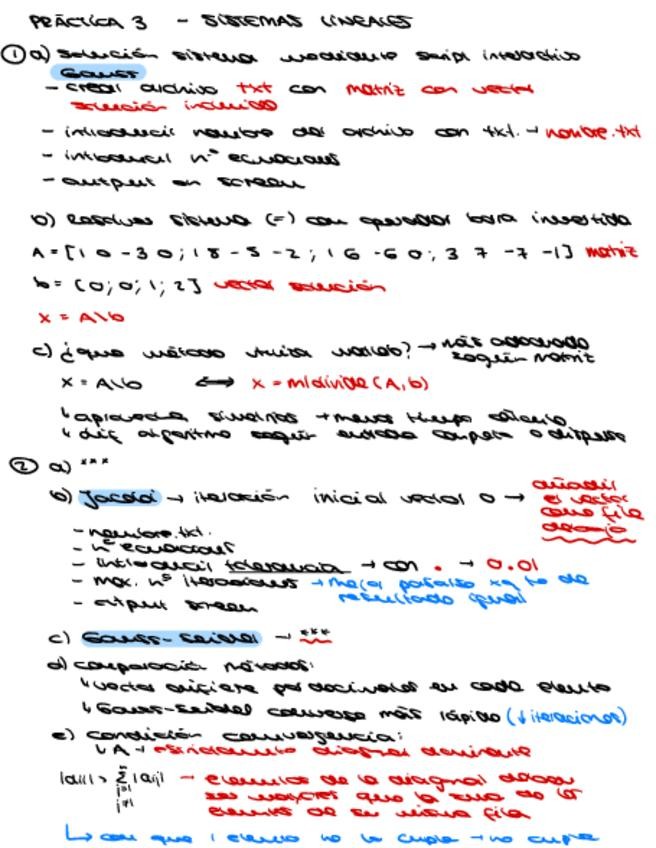 PRÁCTICA 3 - SISTEMAS LINEALES
① a) solución sistema mediante script interactivo
Gauss
- crear archivo txt con matriz con vector
solución incluido
- introducir nombre del archivo con txt. → nombre.txt
- introducir nº ecuaciones
- output on screen
b) Resolver sistema (=) con operador barra invertida
A = [1 0 -3 0; 1 8 -5 -2; 1 6 -6 0; 3 7 -7 -1] matriz
b = [0; 0; 1; 2] vector solución
x = A\b
c) ¿que método utiliza matlab? → más adecuado
según matriz
x = A\b ⟷ x = mldivide(A,b)
↳ aprovecha simetrías → menos tiempo cálculo
↳ dif. algoritmo según entrada completa o dispersa
② a) ***
b) Jacobi → iteración inicial vector 0 → añadir
el vector
como fila
debajo
- nombre.txt.
- nº ecuaciones
- introducir tolerancia → con . → 0.01
- max. nº iteraciones → mejor pasarlo xq te da
resultado igual
- output screen
c) Gauss-Seidel → ***
d) comparación métodos:
↳ vector difiere por decimales en cada elemento
↳ Gauss-Seidel converge más rápido (↓iteraciones)
e) condición convergencia:
↳ A → estrictamente diagonal dominante
|aii| > Σ |aij| → elementos de la diagonal deben
ser mayores que la suma de los
elementos de su misma fila
↳ con que 1 elemento no la cumpla → no cumple